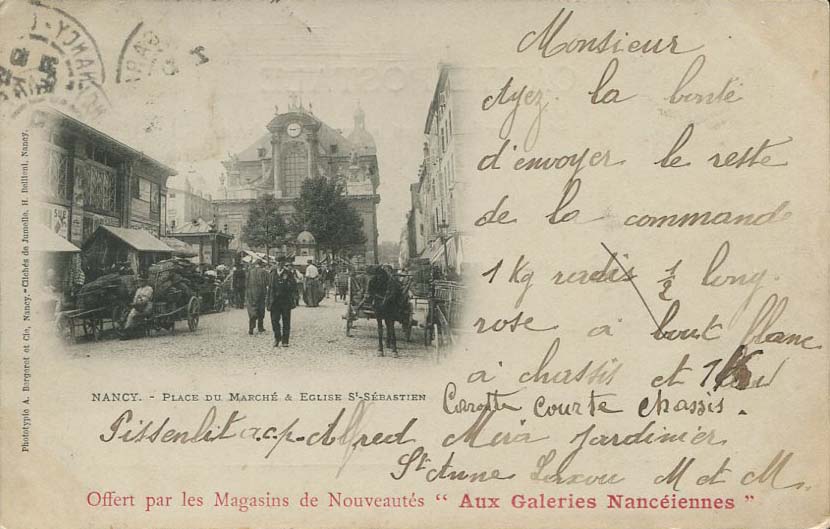 Monsieur
Ayez la bonté
d'envoyer le reste
de la commande
1 Kg radis ½ long
rose a bout blanc
a chassis et 1
Carotte courte chassis.
Pissenlit a.c.p. Alfred jardinier
St Anne Laxou M et M.
NANCY. - PLACE DU MARCHÉ & EGLISE St-SÉBASTIEN
Offert par les Magasins de Nouveautés “ Aux Galeries Nancéiennes ”
Phototypie A. Bergeret et Cie, Nancy. - Clichés de Jumelle, H. Bellieni, Nancy.
NANCY